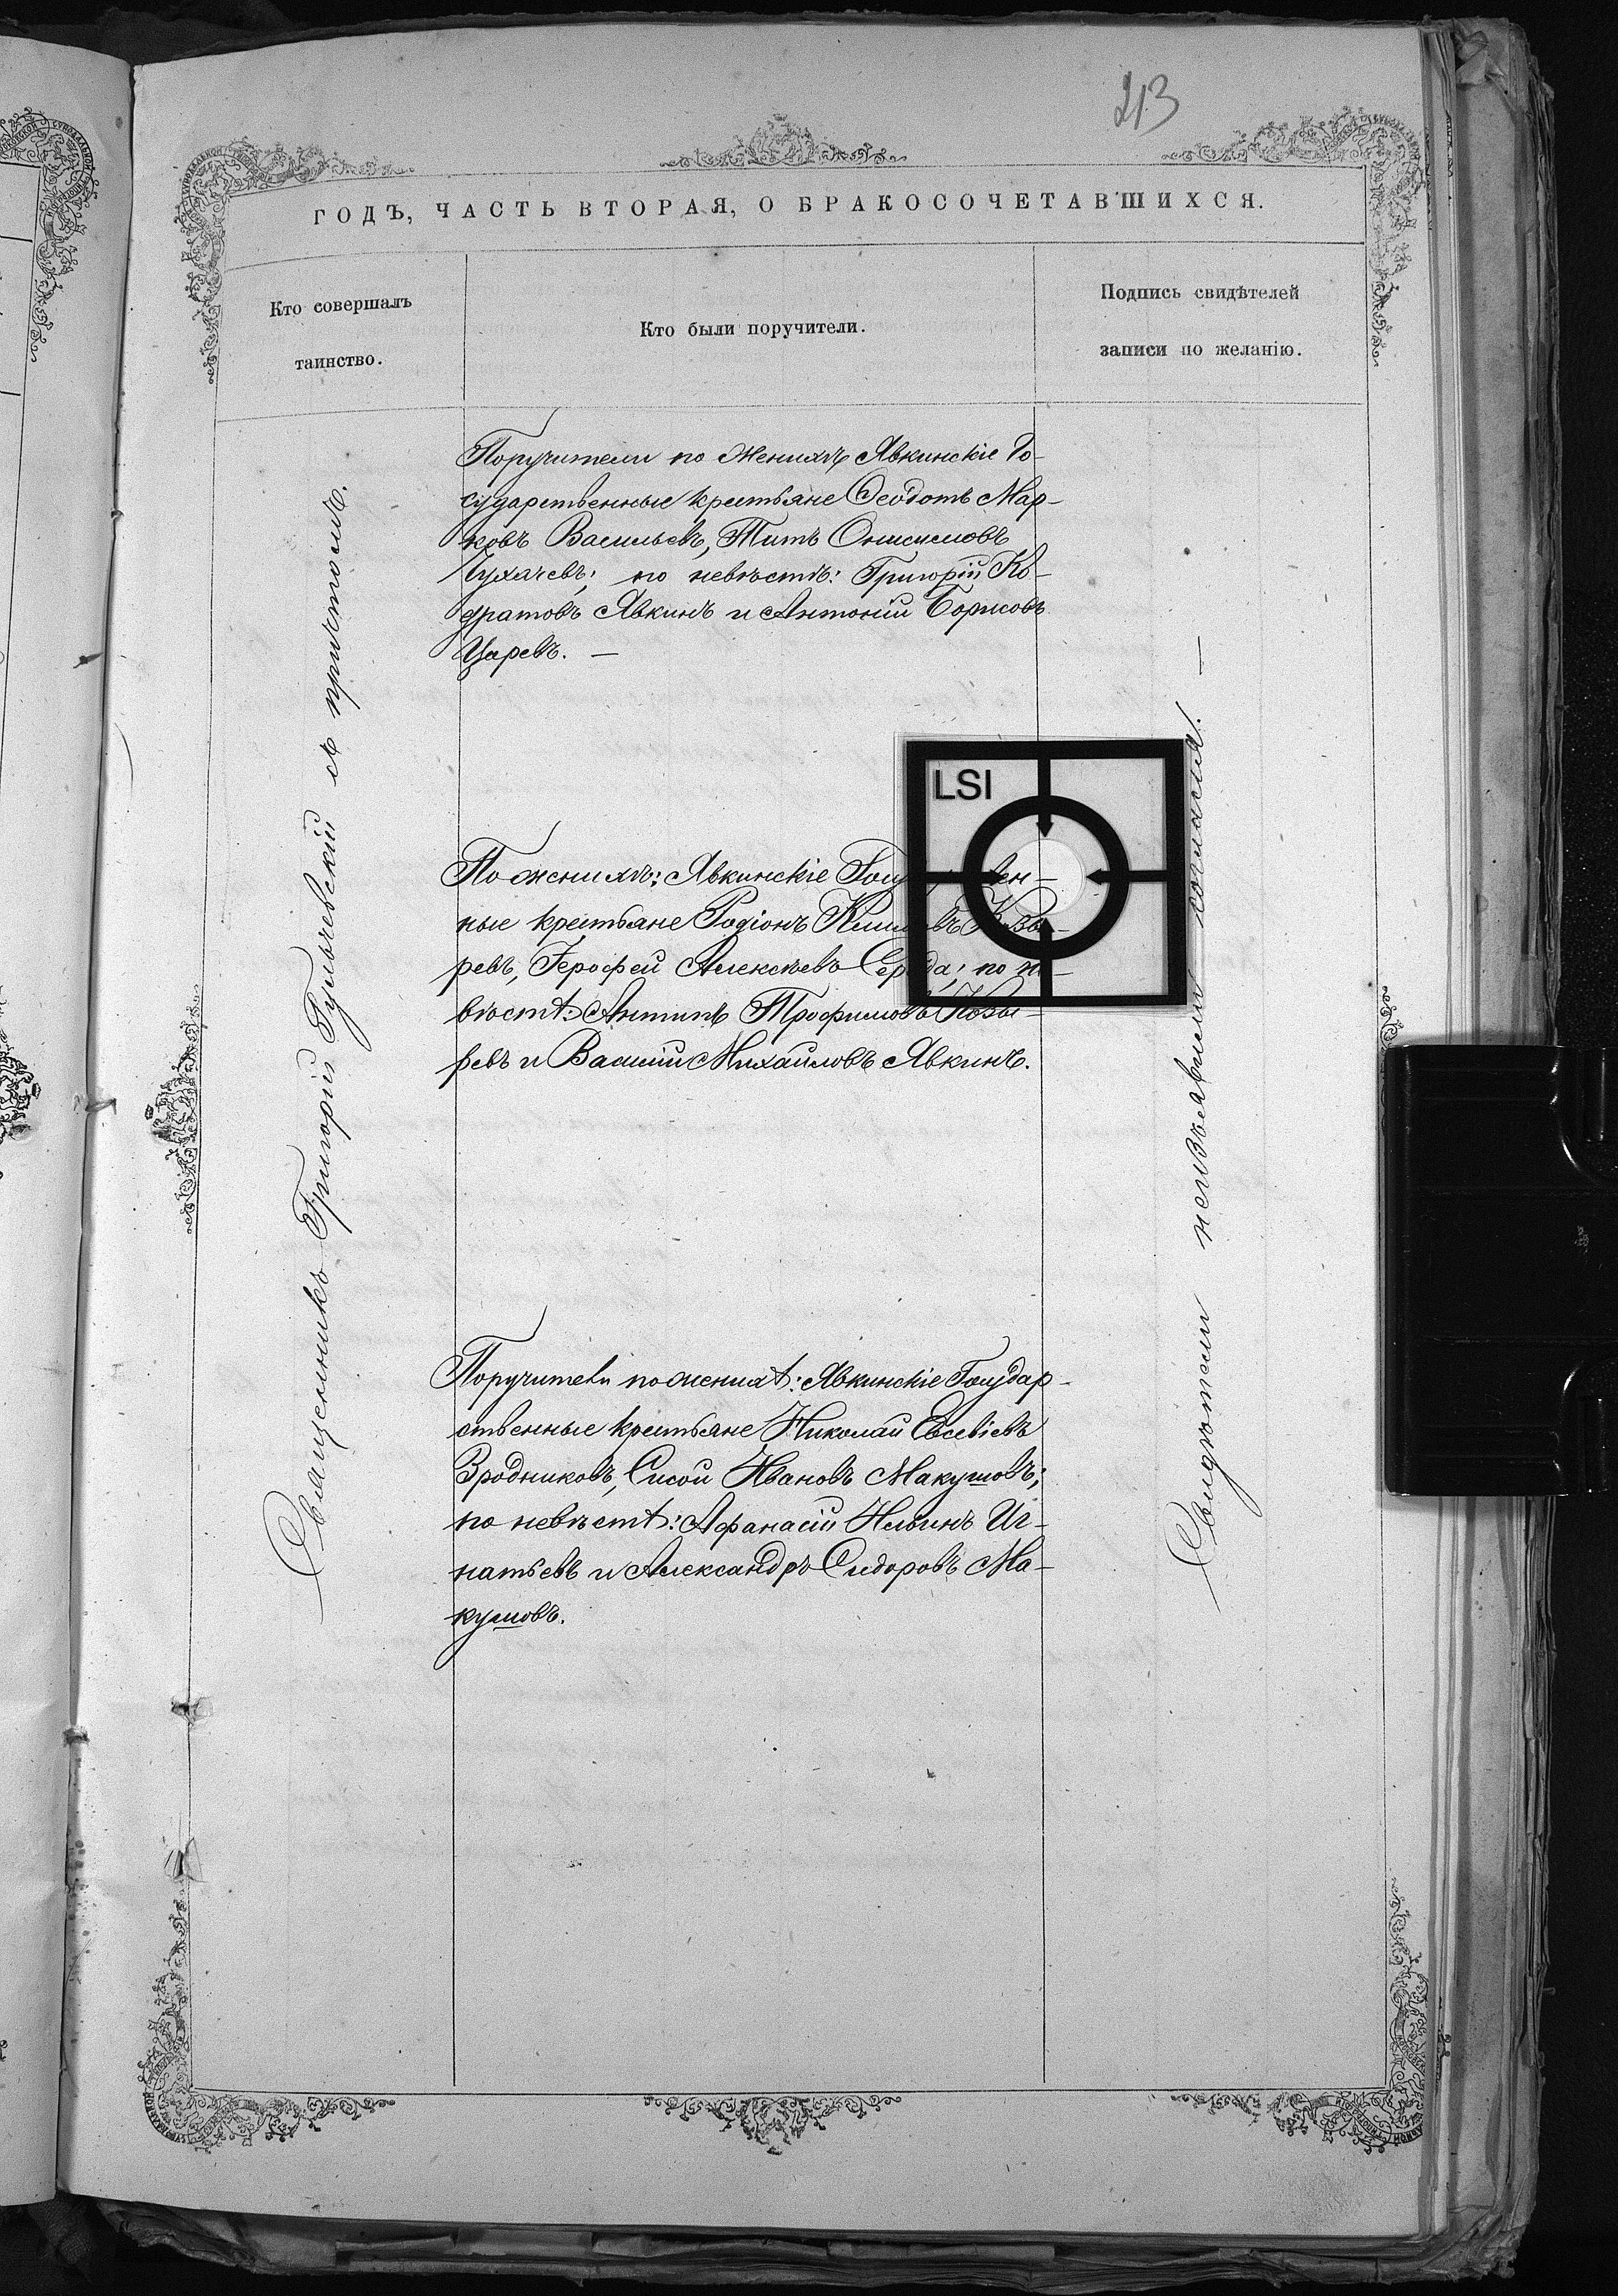 213
ГОДЪ, ЧАСТЬ ВТОРАЯ, О БРАКОСОЧЕТАВШИХСЯ.
Кто совершалъ
таинство.
Кто были поручители.
Подпись свидѣтелей
записи по желанію.
Священникъ Григорій Гульчевскій съ причтомъ.
Поручители по женихѣ Явкинскіе Го-
сударственные крестьяне Ѳеодотъ Мар-
ковъ Васильевъ, Титъ Онисимовъ
Чухачевъ; по невѣстѣ: Григорій Ко-
дратовъ Явкинъ и Антоній Борисовъ
Царевъ. —
По женихѣ: Явкинскіе
ные крестьяне Родіонъ
ревъ, Іерофей Алексѣевъ по не-
вѣстѣ: Антипъ Трофимовъ Козы-
ревъ и Василій Михайловъ Явкинъ.
LSI
Поручители по женихѣ: Явкинскіе Государ-
ственные крестьяне Николай Евсевіевъ
Бродниковъ, Сисой Ивановъ Макушовъ;
по невѣстѣ: Афанасій Ильинъ Иг-
натьевъ и Александръ Сидоровъ Ма-
кушовъ.
Свидѣтели неизъявили согласія. —